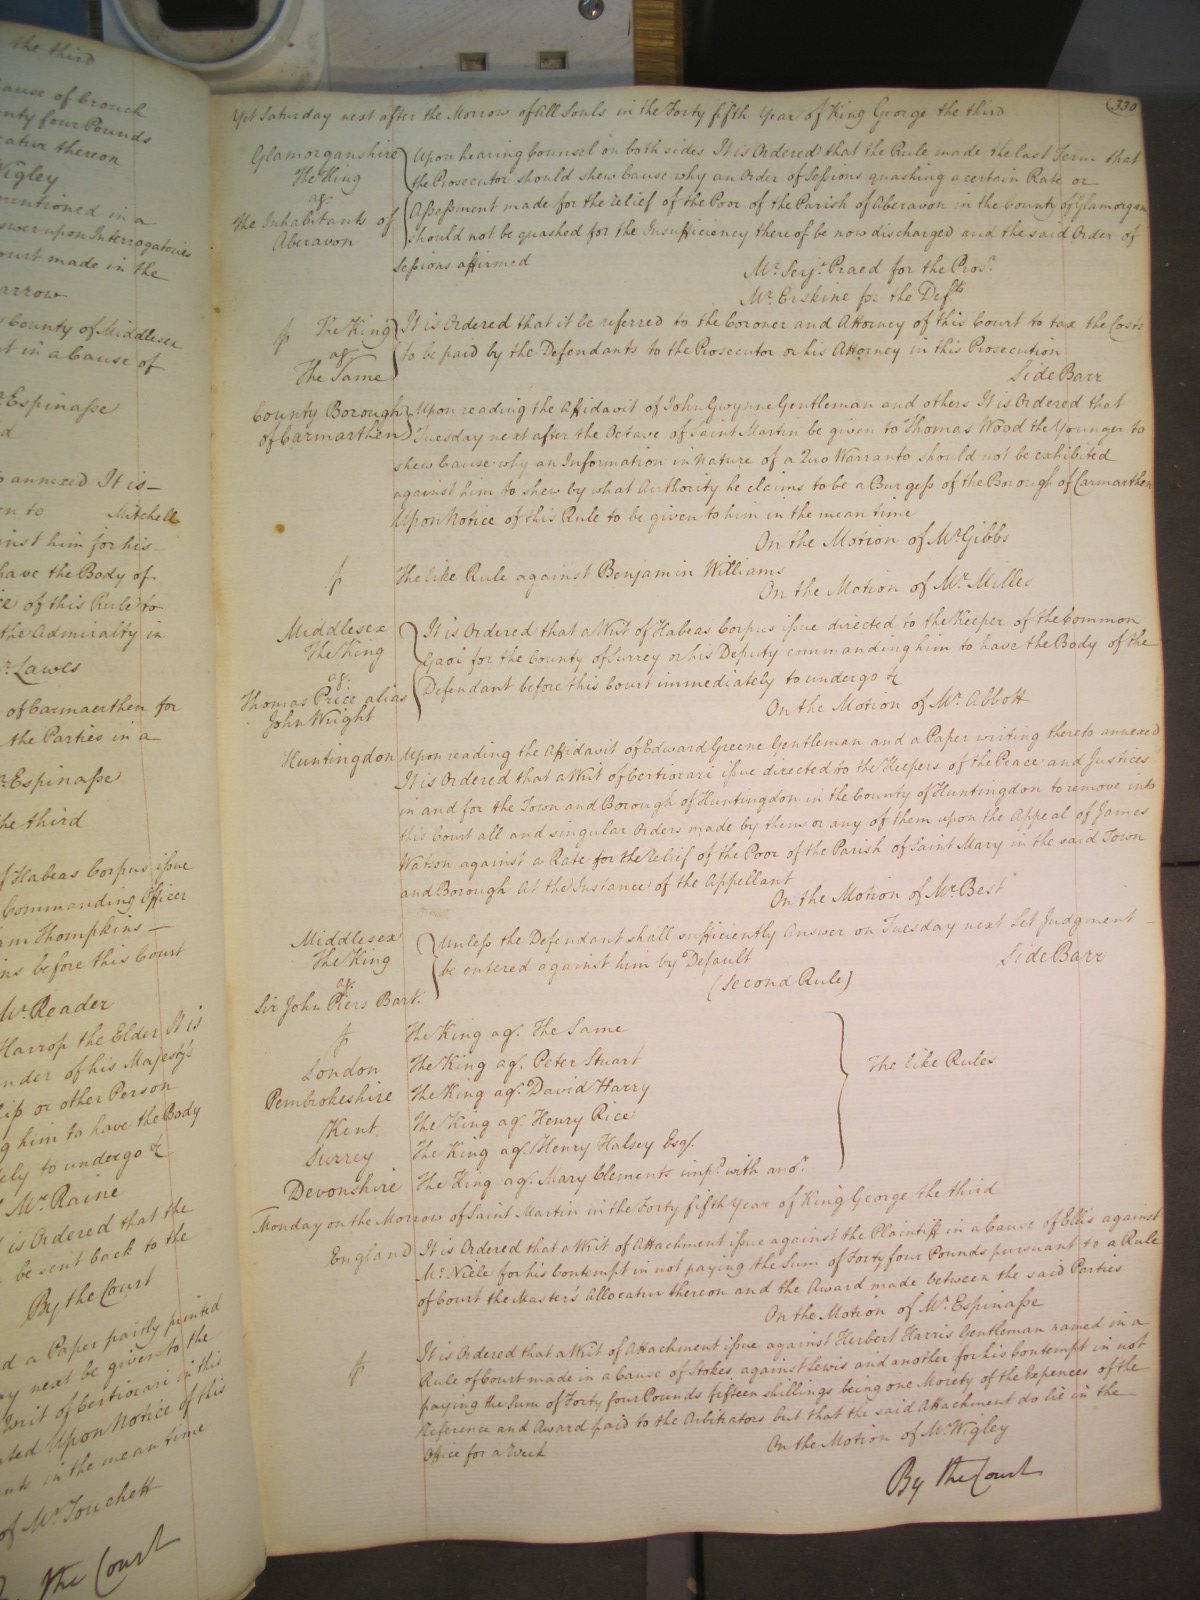 330
Yet Saturday next after the Morrow of All Souls in the Forty fifth Year of King George the third
Glamorganshire
The King
agt.
The Inhabitants of
Aberavon
Upon hearing Counsel on both sides It is Ordered that the Rule made the last Term that
the Prosecutor should shew Cause why an Order of Sessions quashing a certain Rate or
Assessment made for the relief of the Poor of the Parish of Aberavon in the County of Glamorgan
should not be quashed for the Insufficiency thereof be now discharged and the said Order of
Sessions affirmed
Mr. Serjt. Praed for the Prosr.
Mr. Erskine for the Defts
The King
agt.
The Same
It is Ordered that it be referred to the Coroner and Attorney of this Court to tax the Costs
to be paid by the Defendants to the Prosecutor or his Attorney in this Prosecution
Side Barr
County Borough
of Carmarthen
Upon reading the Affidavit of John Gwynne Gentleman and others It is Ordered that
Tuesday next after the Octave of Saint Martin be given to Thomas Wood the Younger to
shew Cause why an Information in Nature of a Quo Warranto should not be exhibited
against him to shew by what Authority he claims to be a Burgess of the Borough of Carmarthen
Upon Notice of this Rule to be given to him in the mean time
On the Motion of Mr. Gibbs
The like Rule against Benjamin Williams
On the Motion of Mr. Milles
Middlesex
The King
agt.
Thomas Price alias
John Wright
It is Ordered that a Writ of Habeas Corpus issue directed to the Keeper of the Common
Gaol for the County of Surrey or his Deputy commanding him to have the Body of the
Defendant before this Court immediately to undergo &c
On the Motion of Mr. Abbott
Huntingdon
Upon reading the Affidavit of Edward Greene Gentleman and a Paper writing thereto annexed
It is Ordered that a Writ of Certiorari issue directed to the Keepers of the Peace and Justices
in and for the Town and Borough of Huntingdon in the County of Huntingdon to remove into
this Court all and singular Orders made by them or any of them upon the Appeal of James
Watson against a Rate for the relief of the Poor of the Parish of Saint Mary in the said Town
and Borough At the Instance of the Appellant
On the Motion of Mr. Best
Middlesex
The King
agt.
Sir John Piers Bart.
Unless the Defendant shall sufficiently Answer on Tuesday next Let Judgment
be entered against him by Default
Side Barr
(Second Rule)
The King agt. The Same
London The King agt. Peter Stuart
Pembrokeshire The King agt. David Harry
Kent The King agt. Henry Rice
Surrey The King agt. Henry Halsey Esqr.
Devonshire The King agt. Mary Clements impd. with anor.
The like Rules
Monday on the Morrow of Saint Martin in the Forty fifth Year of King George the third
England
It is Ordered that a Writ of Attachment issue against the Plaintiff in a Cause of Ellis against
Mc. Niele for his Contempt in not paying the Sum of Forty four Pounds pursuant to a Rule
of Court the Master's Allocatur thereon and the Award made between the said Parties
On the Motion of Mr. Espinasse
It is Ordered that a Writ of Attachment issue against Herbert Harris Gentleman named in a
Rule of Court made in a Cause of Stokes against Lewis and another for his Contempt in not
paying the Sum of Forty four Pounds fifteen shillings being one Moiety of the Expences of the
Reference and Award paid to the Arbitrators but that the said Attachment do lie in the
Office for a Week
On the Motion of Mr. Wigley
By the Court
the third
Cause of Crouch
four Pounds
thereon
Wigley
mentioned in a
upon Interrogatories
Court made in the
County of Middlesex
in a Cause of
Espinasse
annexed It is
to Mitchell
him for his
have the Body of
of this Rule to
the Admiralty in
Lawes
of Carmaerthen for
the Parties in a
Espinasse
the third
Habeas Corpus issue
Commanding Officer
Thompkins
before this Court
Mr. Reader
Harrop the Elder It is
of his Majesty's
or other Person
him to have the Body
to undergo &c
Mr. Raine
is Ordered that the
be sent back to the
By the Court
a Paper partly printed
next be given to the
Writ of Certiorari in this
Upon Notice of this
in the mean time
of Mr. Touchett
the Court